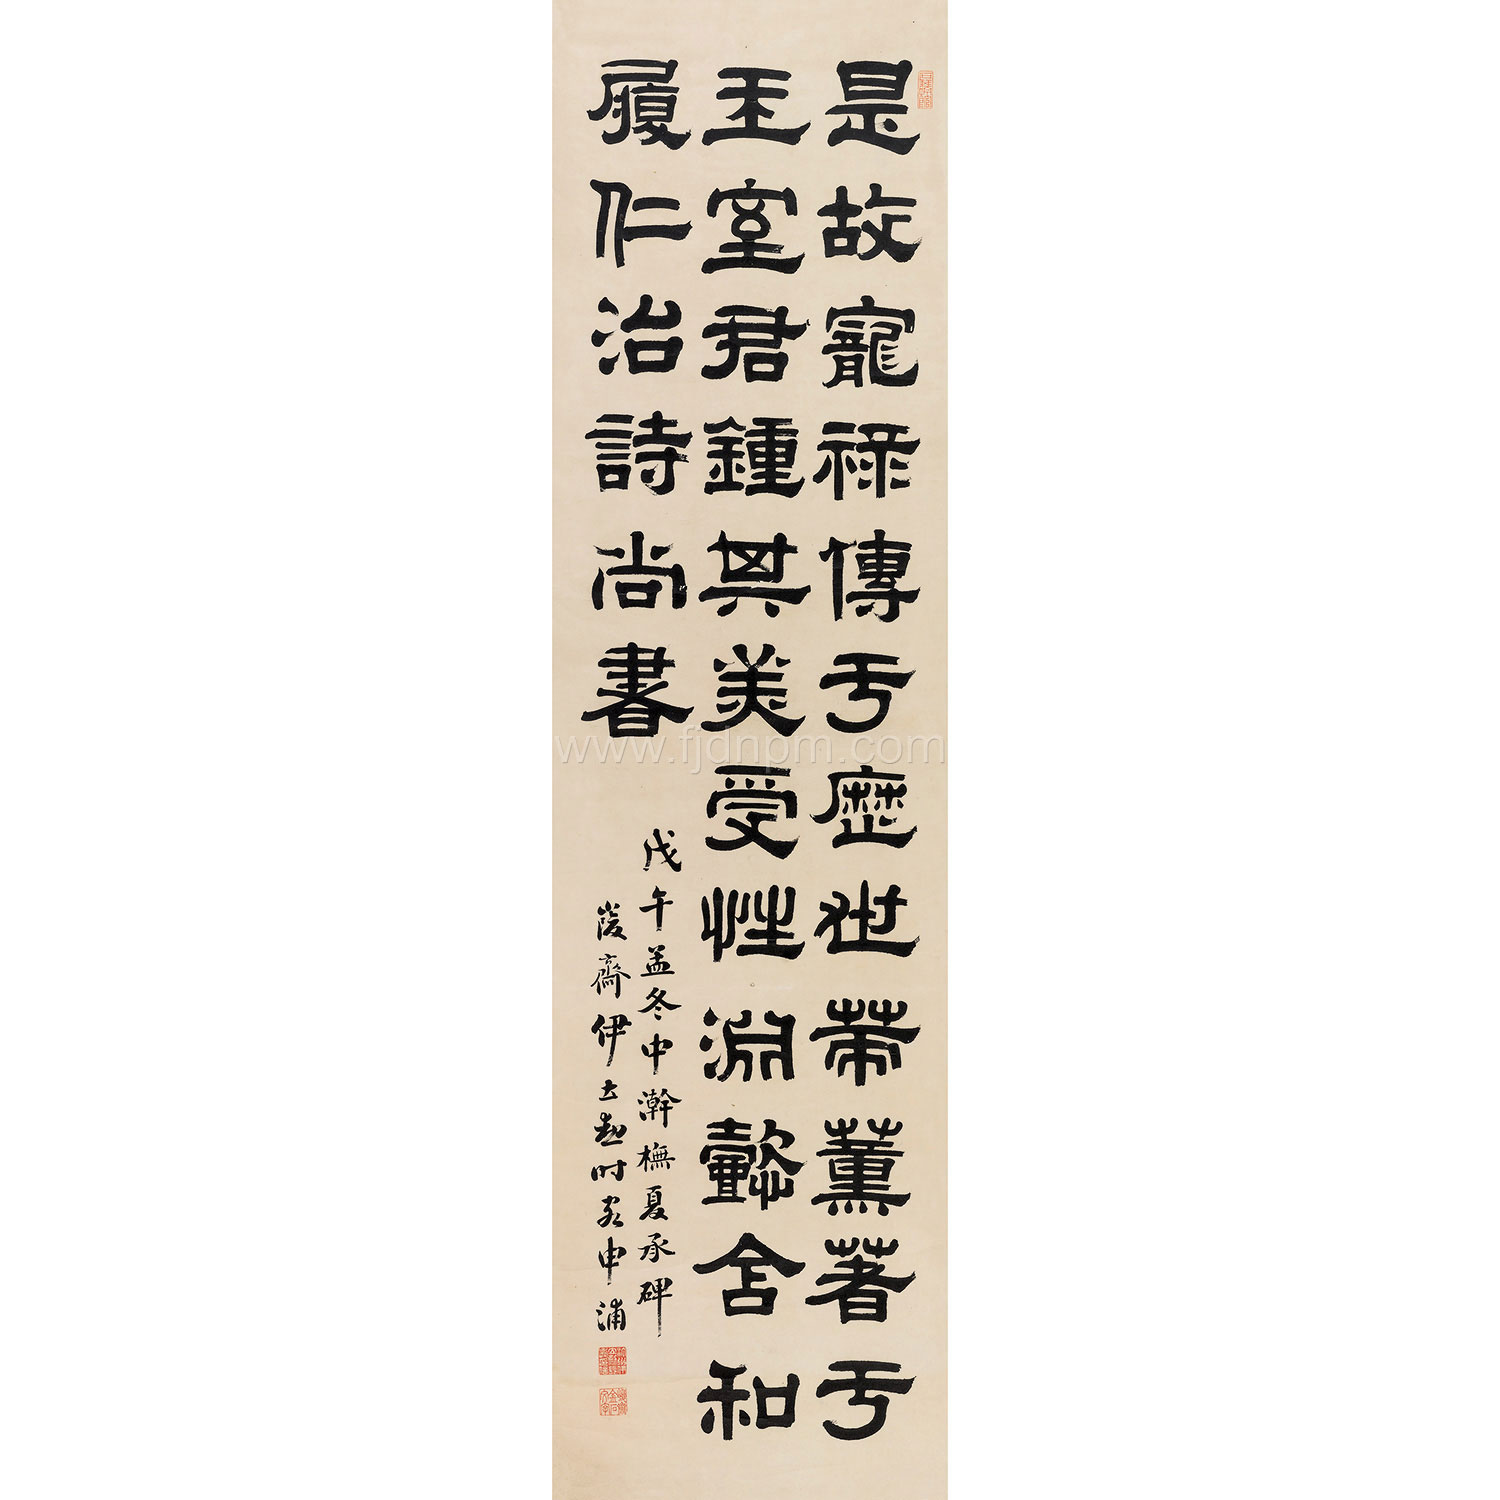 是故寵祿傳亏歷世策薰著亏
王室君鍾其美受性淵懿含和
履仁治詩尚書
戊午孟冬中澣橅夏承碑
峻齋伊立勳時客申浦
www.fjdnpm.com